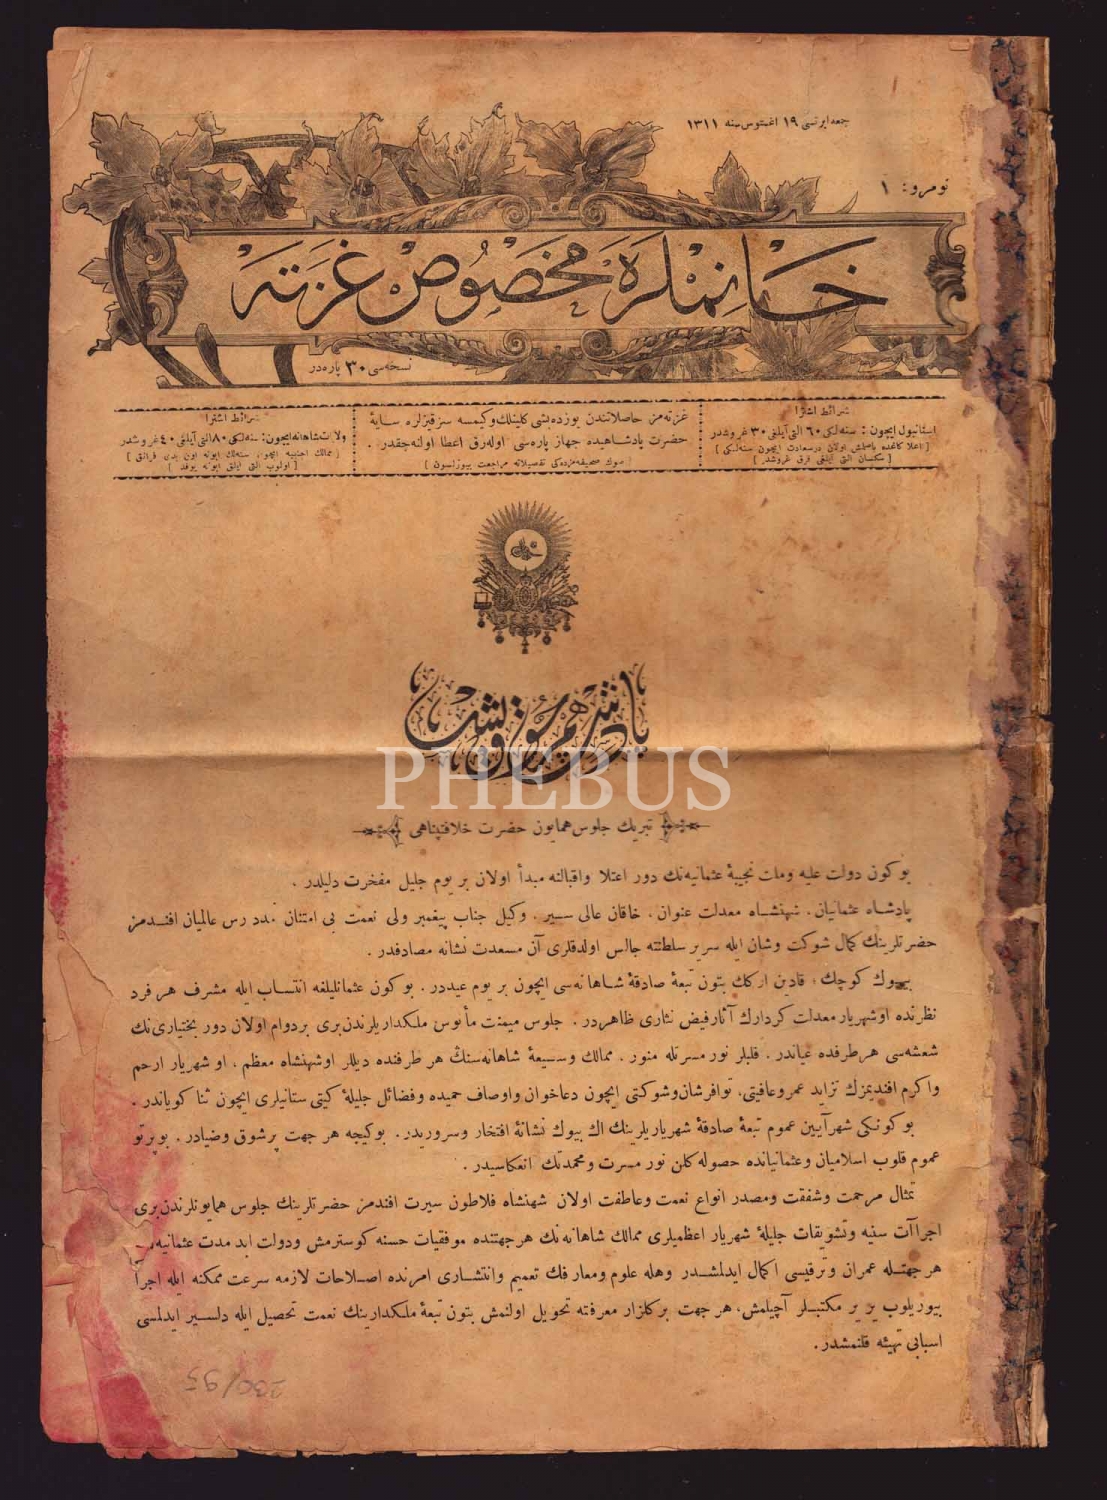 جمعه ایرتسی ١٩ اغستوس سنه ١٣١١
نومرو: ١
خانملره مخصوص غزته
نسخه‌سی ٣٠ پاره‌در
شرائط اشترا
استانبول ایچون: سنه‌لكی ٦٠ التی آیلغی ٣٠ غروشدر
[اعلا كاغده باصلمش اولان درسعادت ایچون سنه‌لكی]
[سكسان التی آیلغی قرق غروشدر]
غزته‌مز حاصلاتندن یوزده بشی كلینلك وكیمسه سز قیزلره سایهٔ
حضرت پادشاهیده جهاز پاره‌سی اوله‌رق اعطا اولنه‌جقدر.
[صوك صحیفه‌مزده‌كی تفصیلاته مراجعت بیورلسون]
شرائط اشترا
ولایات شاهانه ایچون: سنه‌لكی ٨٠ التی آیلغی ٤٠ غروشدر
[ممالك اجنبیه ایچون سنه‌لك ابونه اون بش فرانق]
[اولوب التی آیلق ابونه یوقدر]
پادشاهم چوق یشا
PHEBUS
تبریك جلوس همایون حضرت خلافتپناهی
بو كون دولت علیه وملت نجیبهٔ عثمانیه‌نك دور اعتلا واقبالنه مبدأ اولان بر یوم جلیل مفخرت دلیلدر.
پادشاه عثمانیان، شهنشاه معدلت عنوان، خاقان عالی سیر، وكیل جناب پیغمبر ولی نعمت بی امتنان مدد رس عالمیان افندمز
حضرتلرینك كمال شوكت وشان ایله سریر سلطنته جالس اولدقلری آن مسعدت نشانه مصادفدر.
بیوك كوچك، قادین اركك بتون تبعهٔ صادقهٔ شاهانه‌سی ایچون بر یوم عیددر. بو كون عثمانلیلغه انتساب ایله مشرف هر فرد
نظرنده اوشهریار معدلت كردارك آثار فیض نثاری ظاهردر. جلوس میمنت مأنوس ملكداریلرندن بری بردوام اولان دور بختیاری نك
شعشه‌سی هر طرفده عیاندر. قلبلر نور مسرتله منور. ممالك وسیعهٔ شاهانه‌سنك هر طرفنده دیللر اوشهنشاه معظم، او شهریار ارحم
واكرم افندیمزك تزاید عمر وعافیتی، توافر شان وشوكتی ایچون دعاخوان واوصاف حمیده وفضائل جلیلهٔ كیتی ستانیلری ایچون ثنا كویاندر.
بو كونكی شهرآیین عموم تبعهٔ صادقهٔ شهریاریلرینك اك بیوك نشانهٔ افتخار وسروریدر. بو كیجه هر جهت پرشوق وضیادر. بو پرتو
عموم قلوب اسلامیان وعثمانیانده حصوله كلن نور مسرت ومحمدتك انعكاسیدر.
تمثال مرحمت وشفقت ومصدر انواع نعمت وعاطفت اولان شهنشاه فلاطون سیرت افندمز حضرتلرینك جلوس همایونلرندن بری
اجراآت سنیه وتشویقات جلیلهٔ شهریار اعظمیلری ممالك شاهانه‌نك هر جهتنده موفقیات حسنه كوسترمش ودولت ابد مدت عثمانیه‌نك
هر جهتله عمران وترقیسی اكمال ایدلمشدر وهله علوم ومعارفك تعمیم وانتشاری امرنده اصلاحات لازمه سرعت ممكنه ایله اجرا
بیوریلوب یر یر مكتبلر آچیلمش، هر جهت بر كلزار معرفته تحویل اولنمش بتون تبعهٔ ملكدارینك نعمت تحصیل ایله دلسیر ایدلمسی
اسبابی تهیئه قلنمشدر.
230/95